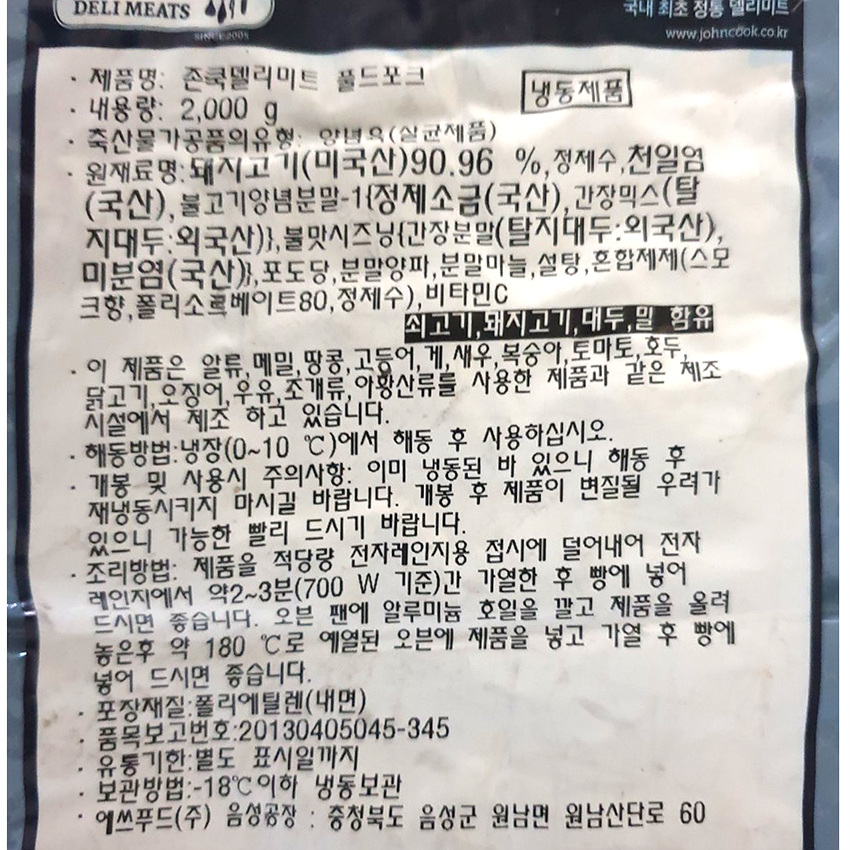 DELI MEATS
SINCE 2005
국내 최초 정통 델리미트
www.johncook.co.kr
· 제품명: 존쿡델리미트 풀드포크
냉동제품
· 내용량: 2,000 g
· 축산물가공품의유형: 양념육(살균제품)
· 원재료명:돼지고기(미국산)90.96 %,정제수,천일염
(국산),불고기양념분말-1{정제소금(국산),간장믹스(탈
지대두:외국산)},불맛시즈닝{간장분말(탈지대두:외국산),
미분염(국산)},포도당,분말양파,분말마늘,설탕,혼합제제(스모
크향,폴리소르베이트80,정제수),비타민C
쇠고기,돼지고기,대두,밀 함유
· 이 제품은 알류,메밀,땅콩,고등어,게,새우,복숭아,토마토,호두,
닭고기,오징어,우유,조개류,아황산류를 사용한 제품과 같은 제조
시설에서 제조 하고 있습니다.
· 해동방법:냉장(0~10 ℃)에서 해동 후 사용하십시오.
· 개봉 및 사용시 주의사항: 이미 냉동된 바 있으니 해동 후
재냉동시키지 마시길 바랍니다. 개봉 후 제품이 변질될 우려가
있으니 가능한 빨리 드시기 바랍니다.
· 조리방법: 제품을 적당량 전자레인지용 접시에 덜어내어 전자
레인지에서 약2~3분(700 W 기준)간 가열한 후 빵에 넣어
드시면 좋습니다. 오븐 팬에 알루미늄 호일을 깔고 제품을 올려
놓은후 약 180 ℃로 예열된 오븐에 제품을 넣고 가열 후 빵에
넣어 드시면 좋습니다.
· 포장재질:폴리에틸렌(내면)
· 품목보고번호:20130405045-345
· 유통기한:별도 표시일까지
· 보관방법:-18℃이하 냉동보관
· 에쓰푸드(주) 음성공장 : 충청북도 음성군 원남면 원남산단로 60